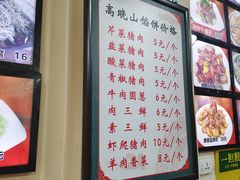 高晓山馅饼价格
芹菜猪肉 5元/个
韭菜猪肉 5元/个
酸菜猪肉 5元/个
青椒猪肉 5元/个
牛肉圆葱 6元/个
肉三鲜 6元/个
素三鲜 5元/个
虾爬猪肉 10元/个
羊肉香菜 8元/个
16元